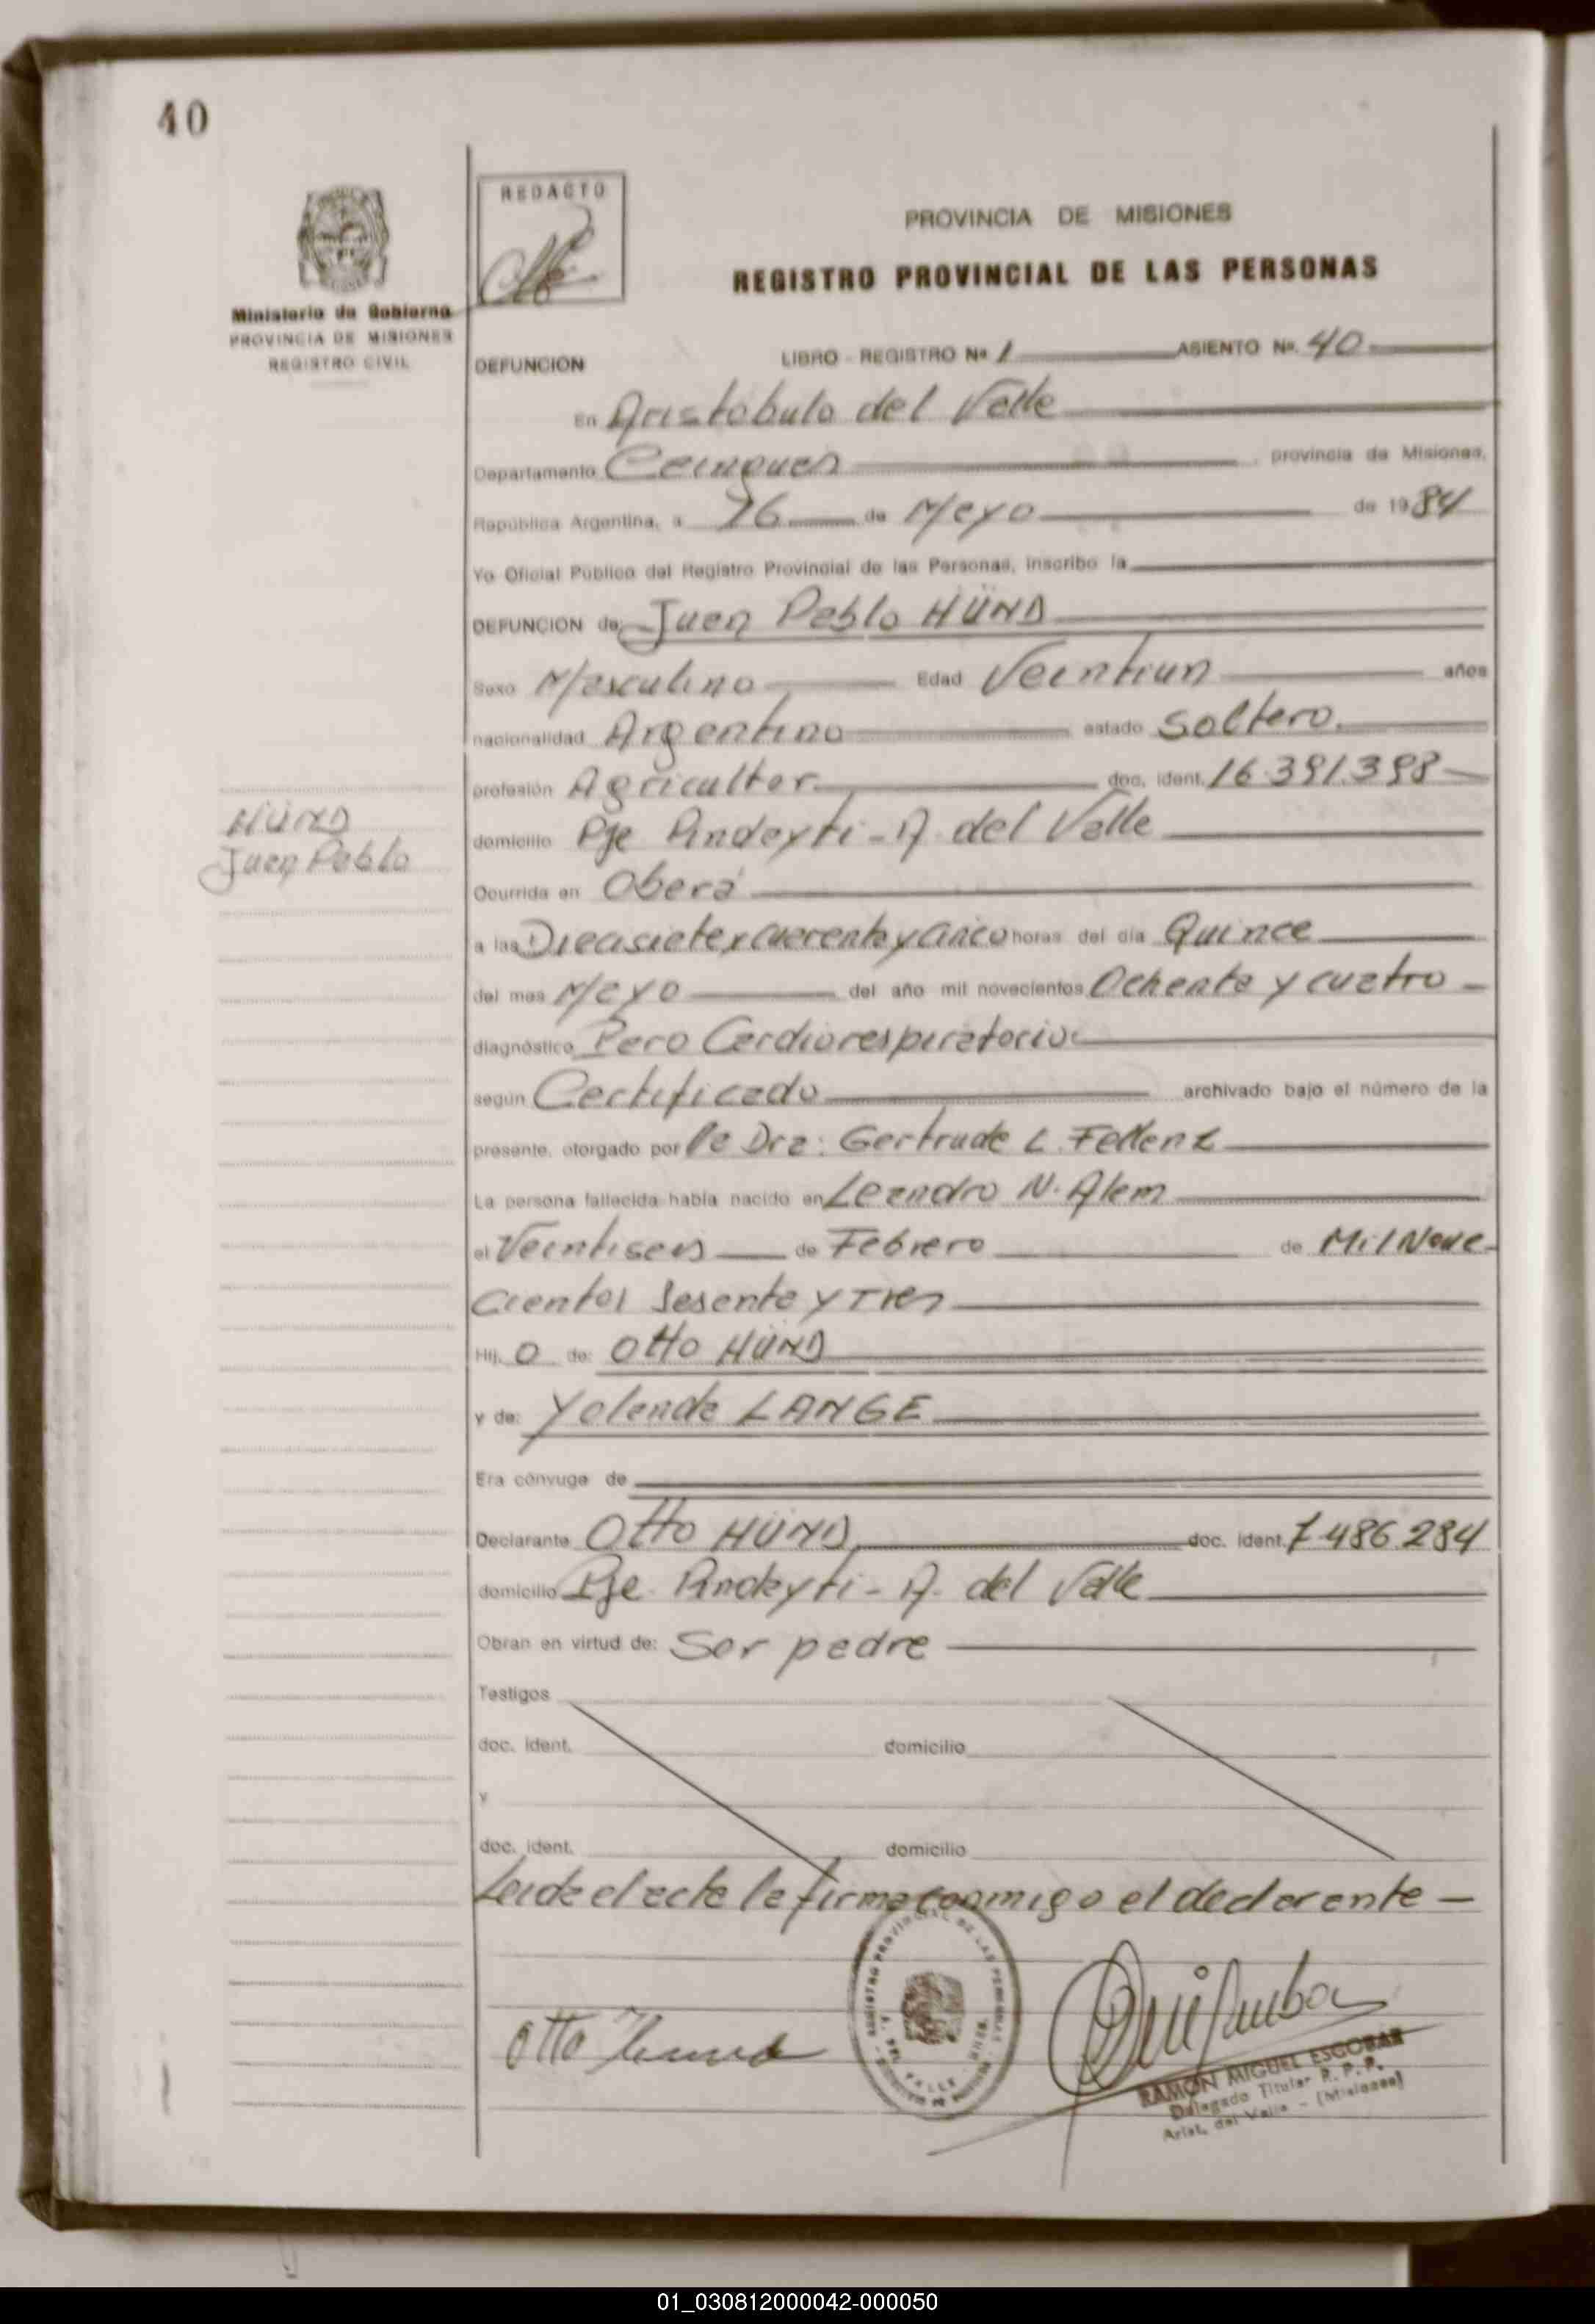 40
REDACTO
PROVINCIA DE MISIONES
REGISTRO PROVINCIAL DE LAS PERSONAS
Ministerio de Gobierno
PROVINCIA DE MISIONES
REGISTRO CIVIL
DEFUNCION LIBRO - REGISTRO Nº 1 ASIENTO Nº. 40
En Aristobulo del Valle
Departamento Cainguas provincia de Misiones,
República Argentina, a 16 de Mayo de 1984
Yo Oficial Público del Registro Provincial de las Personas, inscribo la
DEFUNCION de Juan Pablo HÜND
Sexo Masculino Edad Veintiun años
nacionalidad Argentina estado Soltero.
profesión Agricultor doc. ident. 16.391.398
HÜND
Juan Pablo
domicilio Pje Pindayti - A. del Valle
Ocurrida en Oberá
a las Diecisiete y cuarenta y cinco horas del día Quince
del mes Mayo del año mil novecientos Ochenta y cuatro
diagnóstico Paro Cardiorespiratorio
según Certificado archivado bajo el número de la
presente, otorgado por la Dra: Gertrude L. Fellenz
La persona fallecida había nacido en Leandro N. Alem
el Veintiseis de Febrero de Mil Nove-
cientos Sesenta y Tres
Hij o de: Otto HÜND
y de: Yolanda LANGE
Era cónyuge de
Declarante Otto HÜND doc. ident. 7.486.284
domicilio Pje Pindayti - A. del Valle
Obran en virtud de: Ser padre
Testigos
doc. ident. domicilio
y
doc. ident. domicilio
Leida el acta la firma conmigo el declarante -
REGISTRO PROVINCIAL DE LAS PERSONAS
Otto Hund
RAMON MIGUEL ESCOBAR
Delegado Titular R. P. P.
Arist. del Valle - (Misiones)
01_030812000042-000050